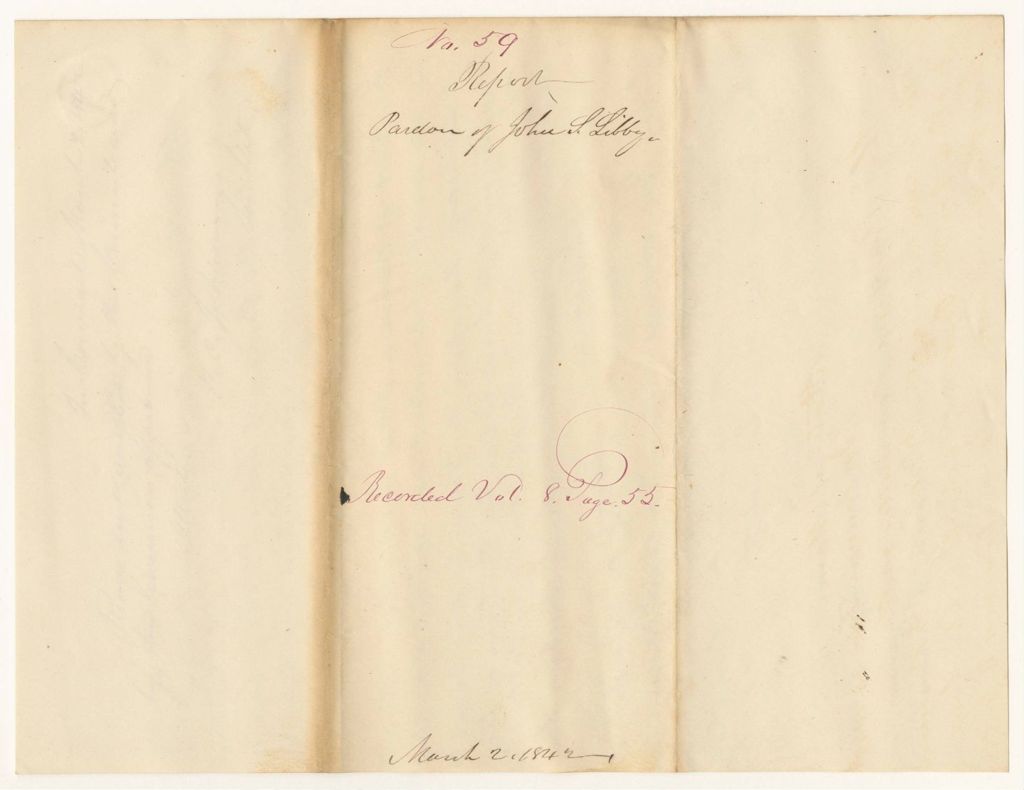 No. 59
Report
Pardon of John S. Libby.
Recorded Vol. 8. Page. 55.
March 2, 1842,